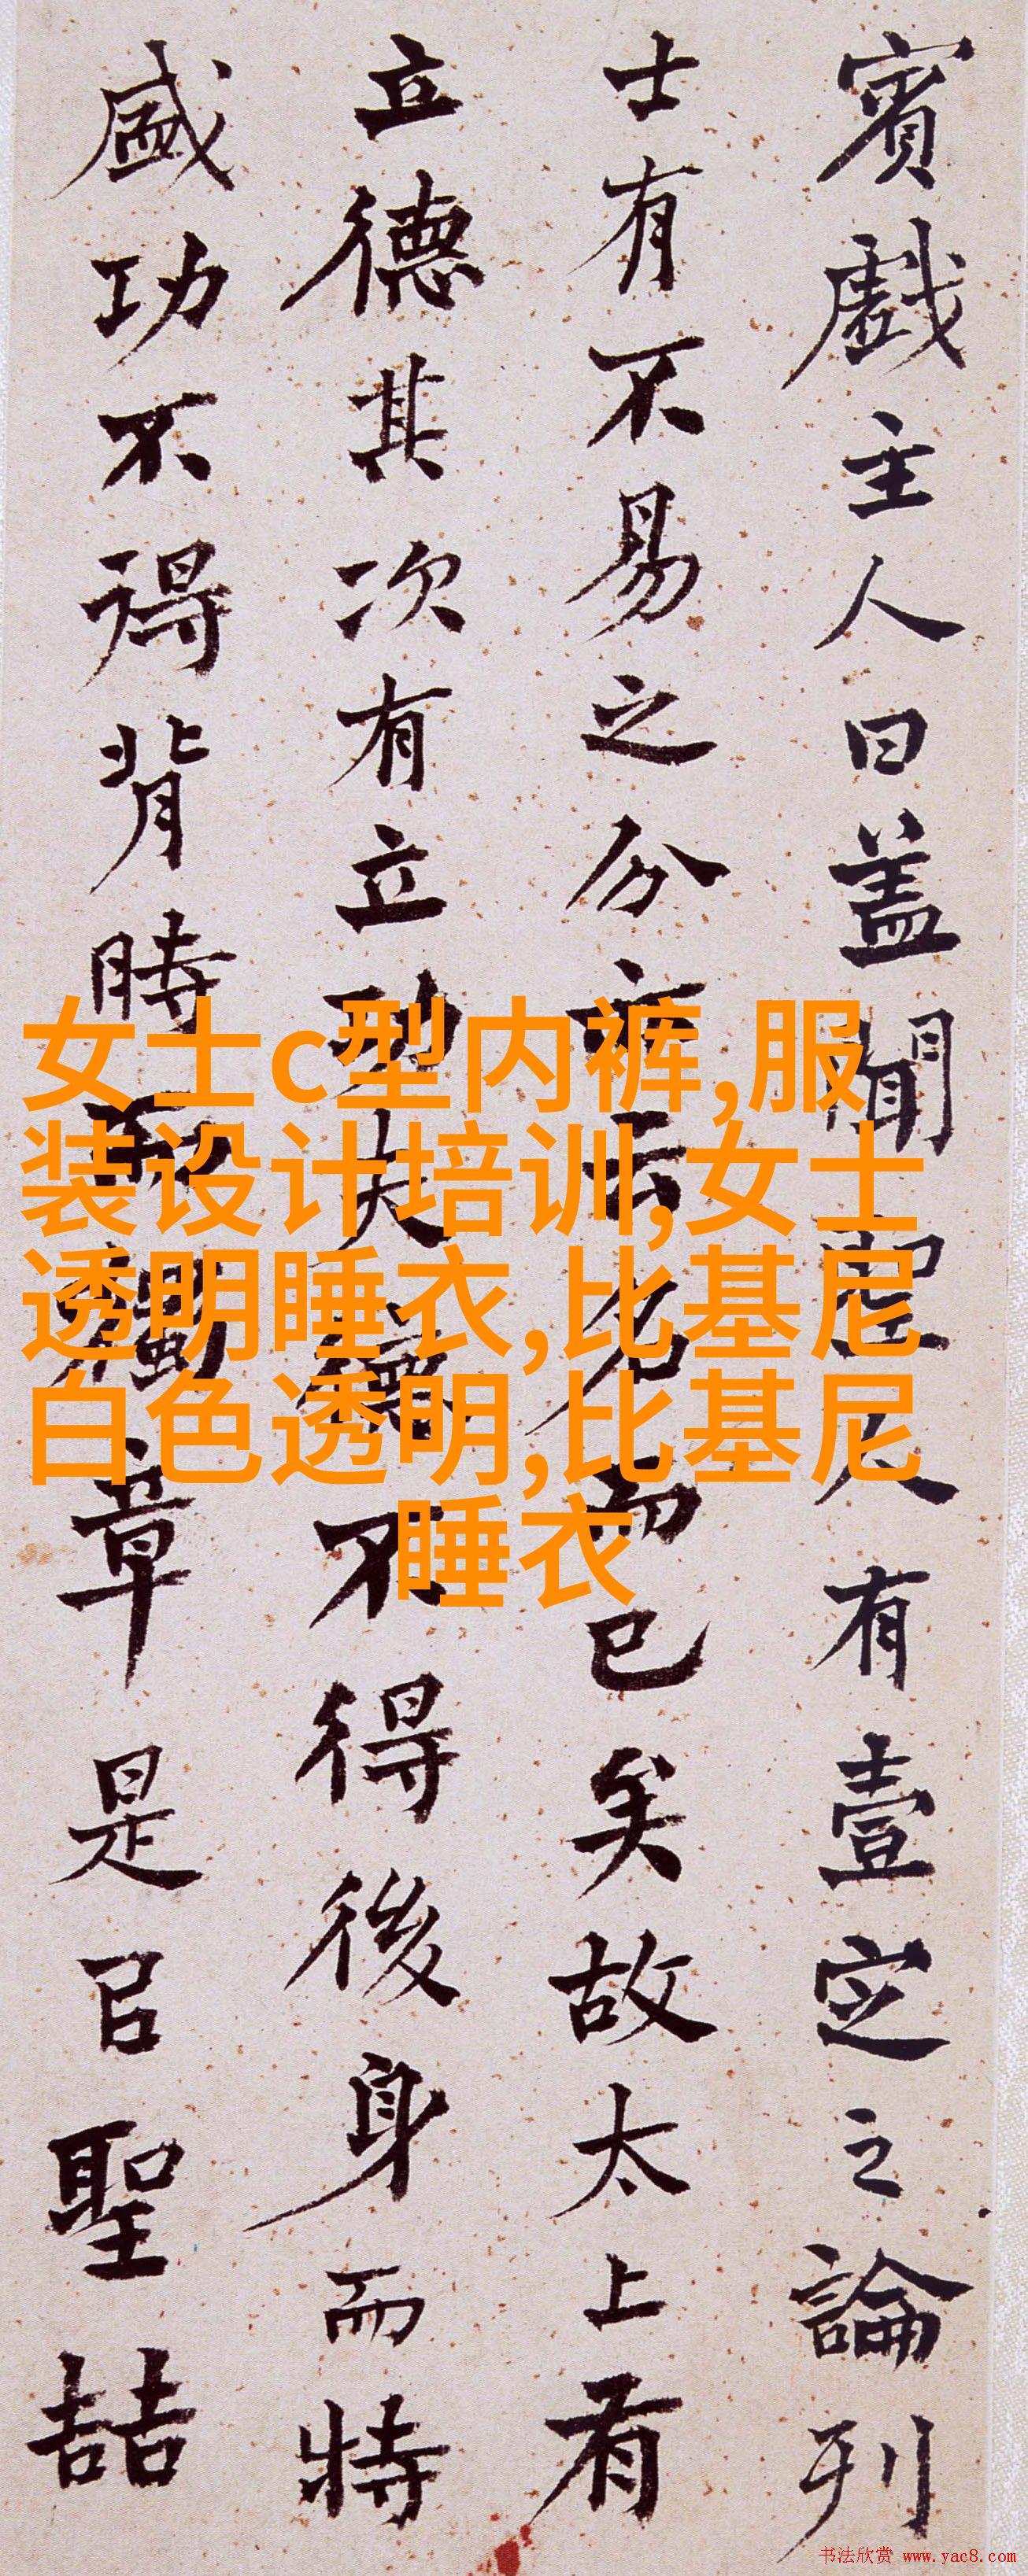 賓戲主人曰盖聞聖人有壹定之論列
士有不易之分亦云名而已矣故太上有
立德其次有立功夫德不得後身而特
盛功不得背時而獨章是㠯聖喆
女士c型内裤,服
装设计培训,女士
透明睡衣,比基尼
白色透明,比基尼
睡衣
书法欣赏 www.yac8.com